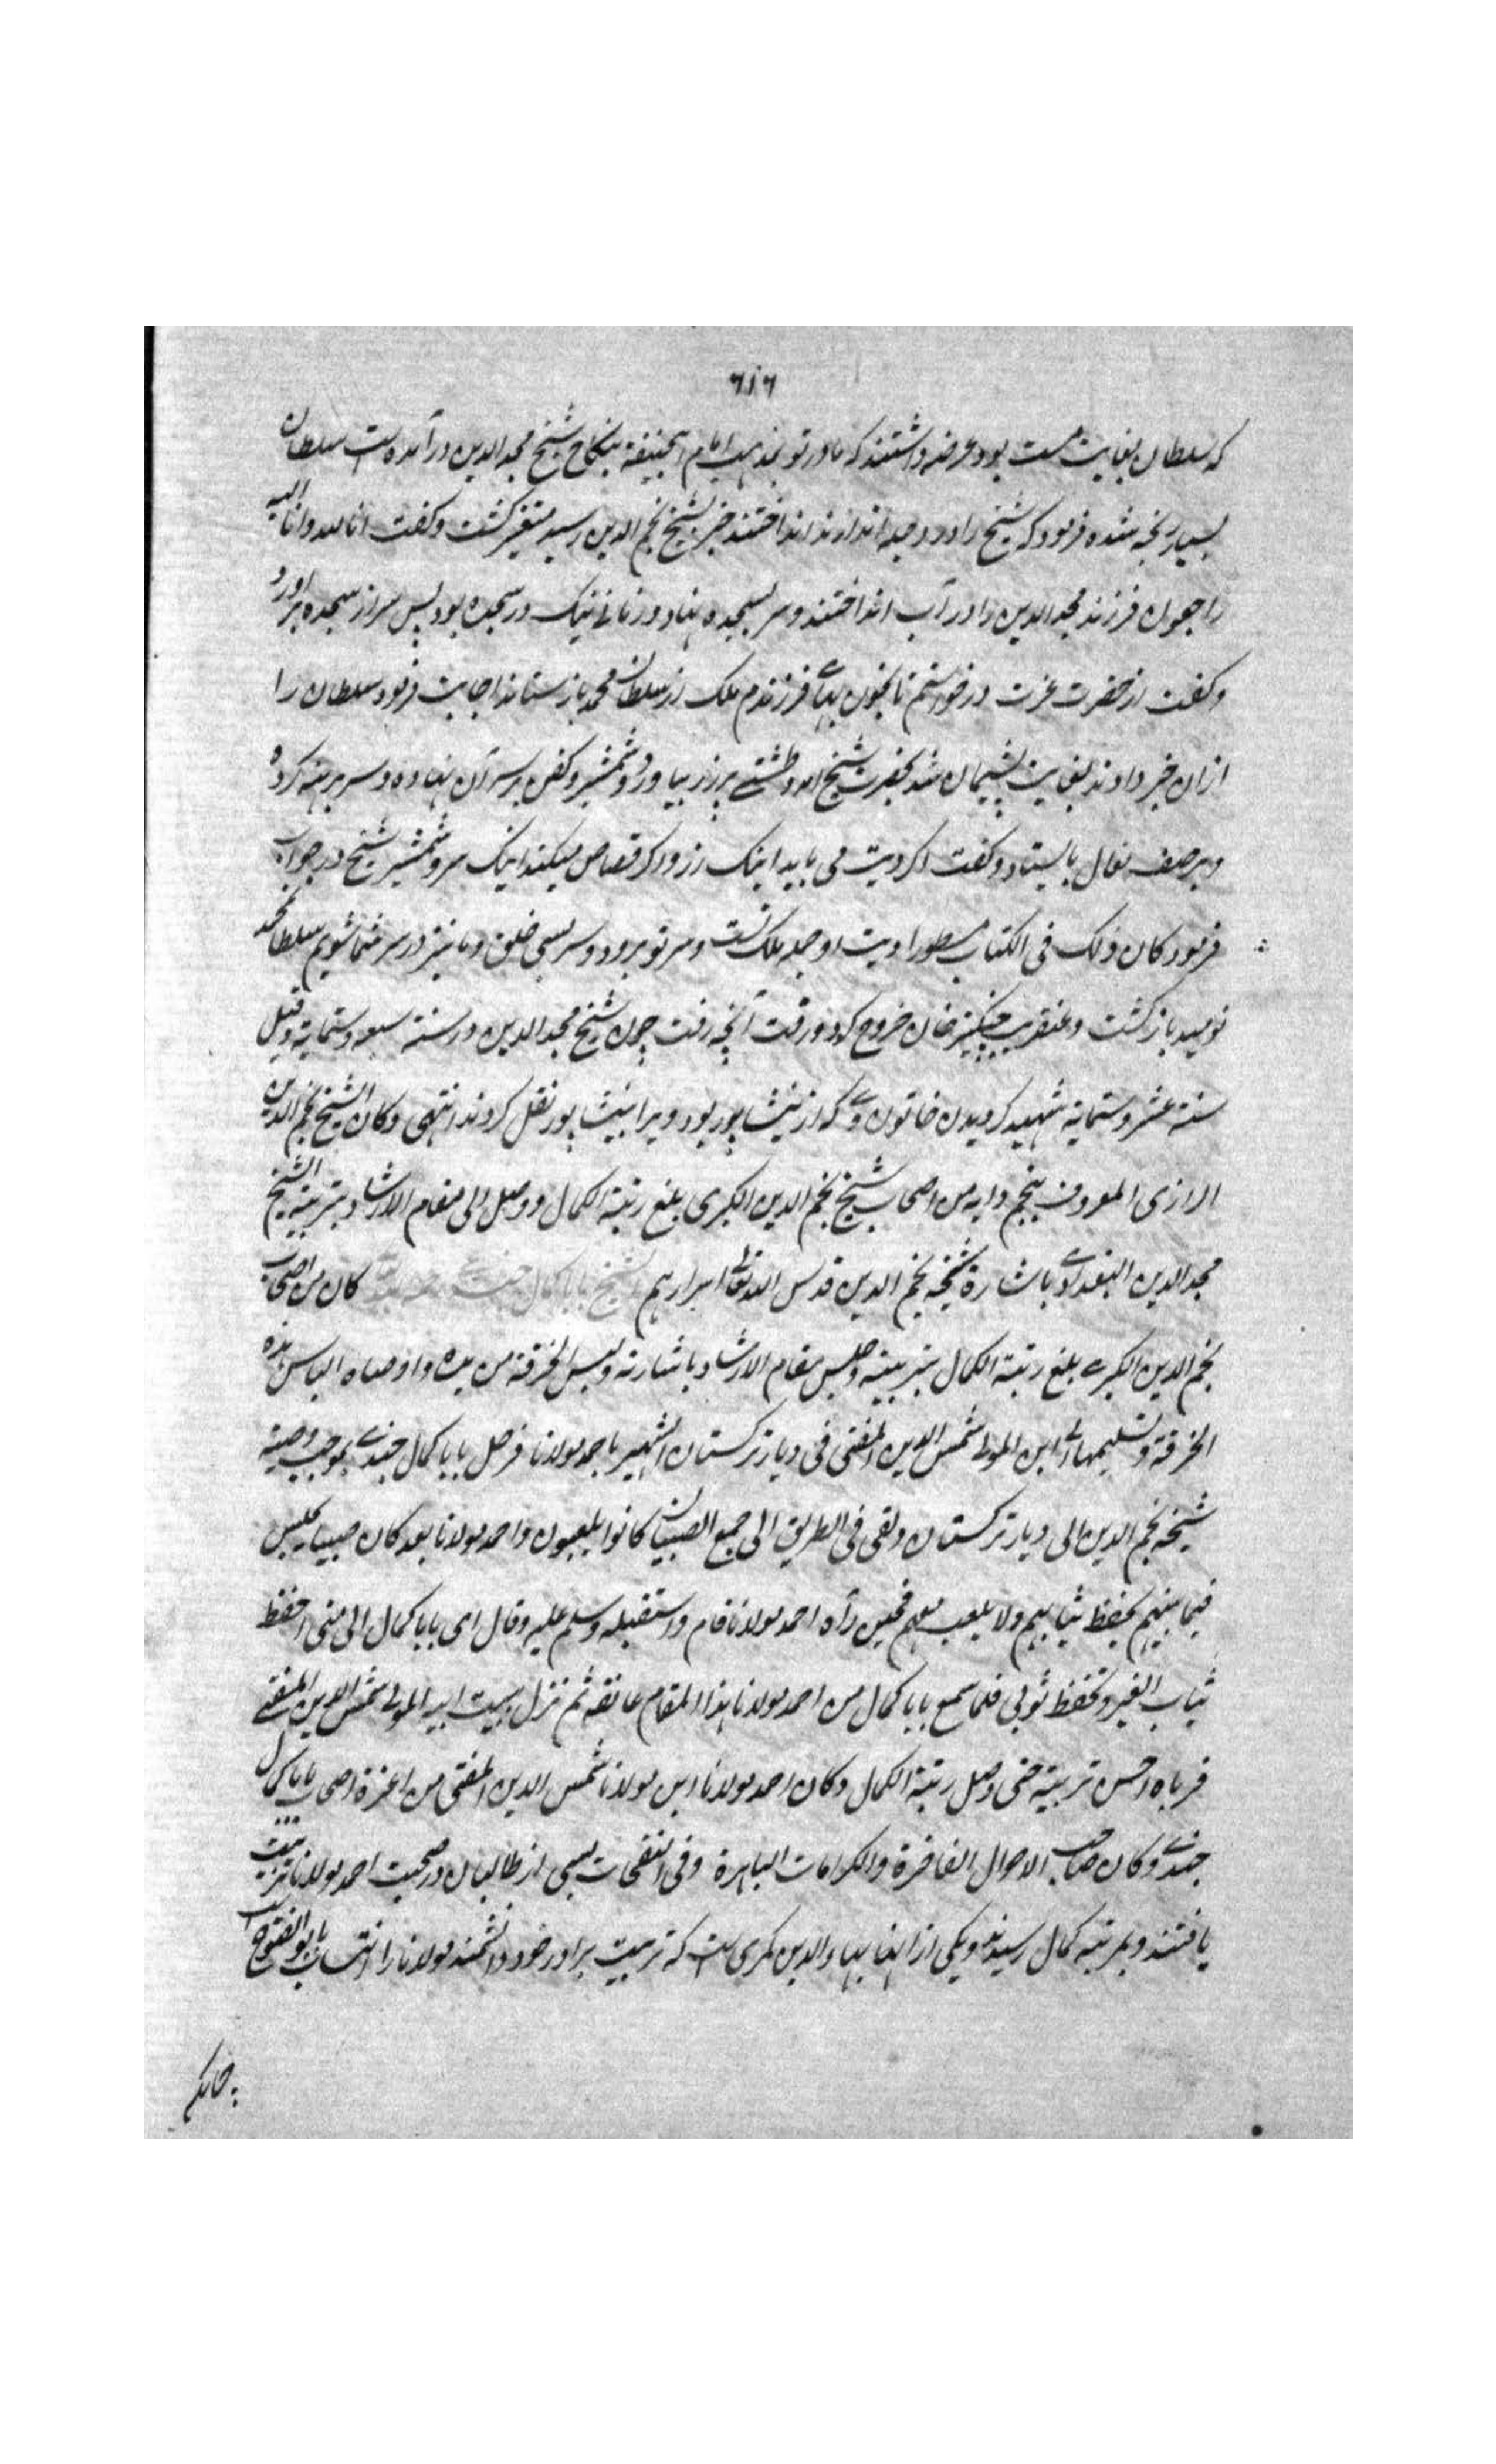 ٦١٦
که سلطان بغایت مست بود عرضه داشتند که مادر تو بمذهب امام ابحنیفة بنکاح شیخ مجد الدین در آمده است سلطان
بسیار رنجه شده فرمود که شیخ را در دجله اندازند انداختند خبر بشیخ نجم الدین رسید متغیر کشت و کفت انا لله وانا الیه
راجعون فرزند مجد الدین را در آب انداختند و سر بسجده نهاد و زمانے نیک در سجده بود پس سر از سجده براورد
و کفت از حضرت عزت درخواستم تا بخون بهاے فرزندم ملک از سلطان محمد باز ستاند اجابت فرمود سلطان را
ازان خبر دادند بغایت پشیمان شد بحضرت شیخ امد و طشتے پر زر بیاورد و شمشیر و کفن بر سر آن نهاده و سر برهنه کرده
و برصف نعال بایستاد و کفت اکر دیت می باید اینک زر و اکر قصاص میکنند اینک سر و شمشیر شیخ در جواب
فرمود کان ذلک فی الکتاب مسطورا دیت او جمله ملک تست و سر تو برود و سر بسی خلق و ما نیز در سر شما شویم سلطان محمد
نومید باز کشت و عنقریب چنکیز خان خروج کرد و رفت آنچه رفت چون شیخ مجد الدین در سنة سبعه وستمایة وقیل
سنة عشر وستمایة شهید کردیدن خاتون وے که از نیشاپور بود ویرا بنیشاپور نقل کردند انتهی وکان الشیخ نجم الدین
الرازی المعروف بنجم دایه من اصحاب شیخ نجم الدین الکبری بلغ رتبة الکمال ووصل الی مقام الارشاد بتربیة الشیخ
مجد الدین البغدادی باشارة شیخه نجم الدین قدس الله تعالی اسرارهم شیخ بابا کمال جندے کان من اصحاب
نجم الدین الکبرے بلغ رتبة الکمال بتربیته وجلس مقام الارشاد باشارته ولبس الخرقة من یده واوصاه الباس هذه
الخرقة وتسلیمها الی ابن المولی شمس الدین المفتی فی دیار ترکستان الشهیر باحمد مولانا فرحل بابا کمال جندے بموجب وصیة
شیخه نجم الدین الی دیار ترکستان ولقی فی الطریق الی جمع الصبیان کانوا یلعبون واحمد مولانا بعد کان صبیا یجلس
فیما بینهم یحفظ ثیابهم ولا یلعب معهم فحین رآه احمد مولانا قام واستقبله وسلم علیه وقال ای بابا کمال الی متی احفظ
ثیاب الغیر وتحفظ ثوبی فلما سمع بابا کمال من احمد مولانا هذا المقام عانقه ثم نزل ببیت ابیه المولی شمس الدین المفتے
فرباه احسن تربیة حتی وصل رتبة الکمال وکان احمد مولانا ابن مولانا شمس الدین المفتی من اعزة اصحاب بابا کمال
جندے وکان صاحب الاحوال الفاخرة والکرامات الباهرة وفی النفحات بسی از طالبان در صحبت احمد مولانا تربیت
یافتند و بمرتبه کمال رسیدند و یکی ازانها بهاء الدین کبری است که تربیت برادر خود دانشمند مولانا را انتساب بابو الفتوح